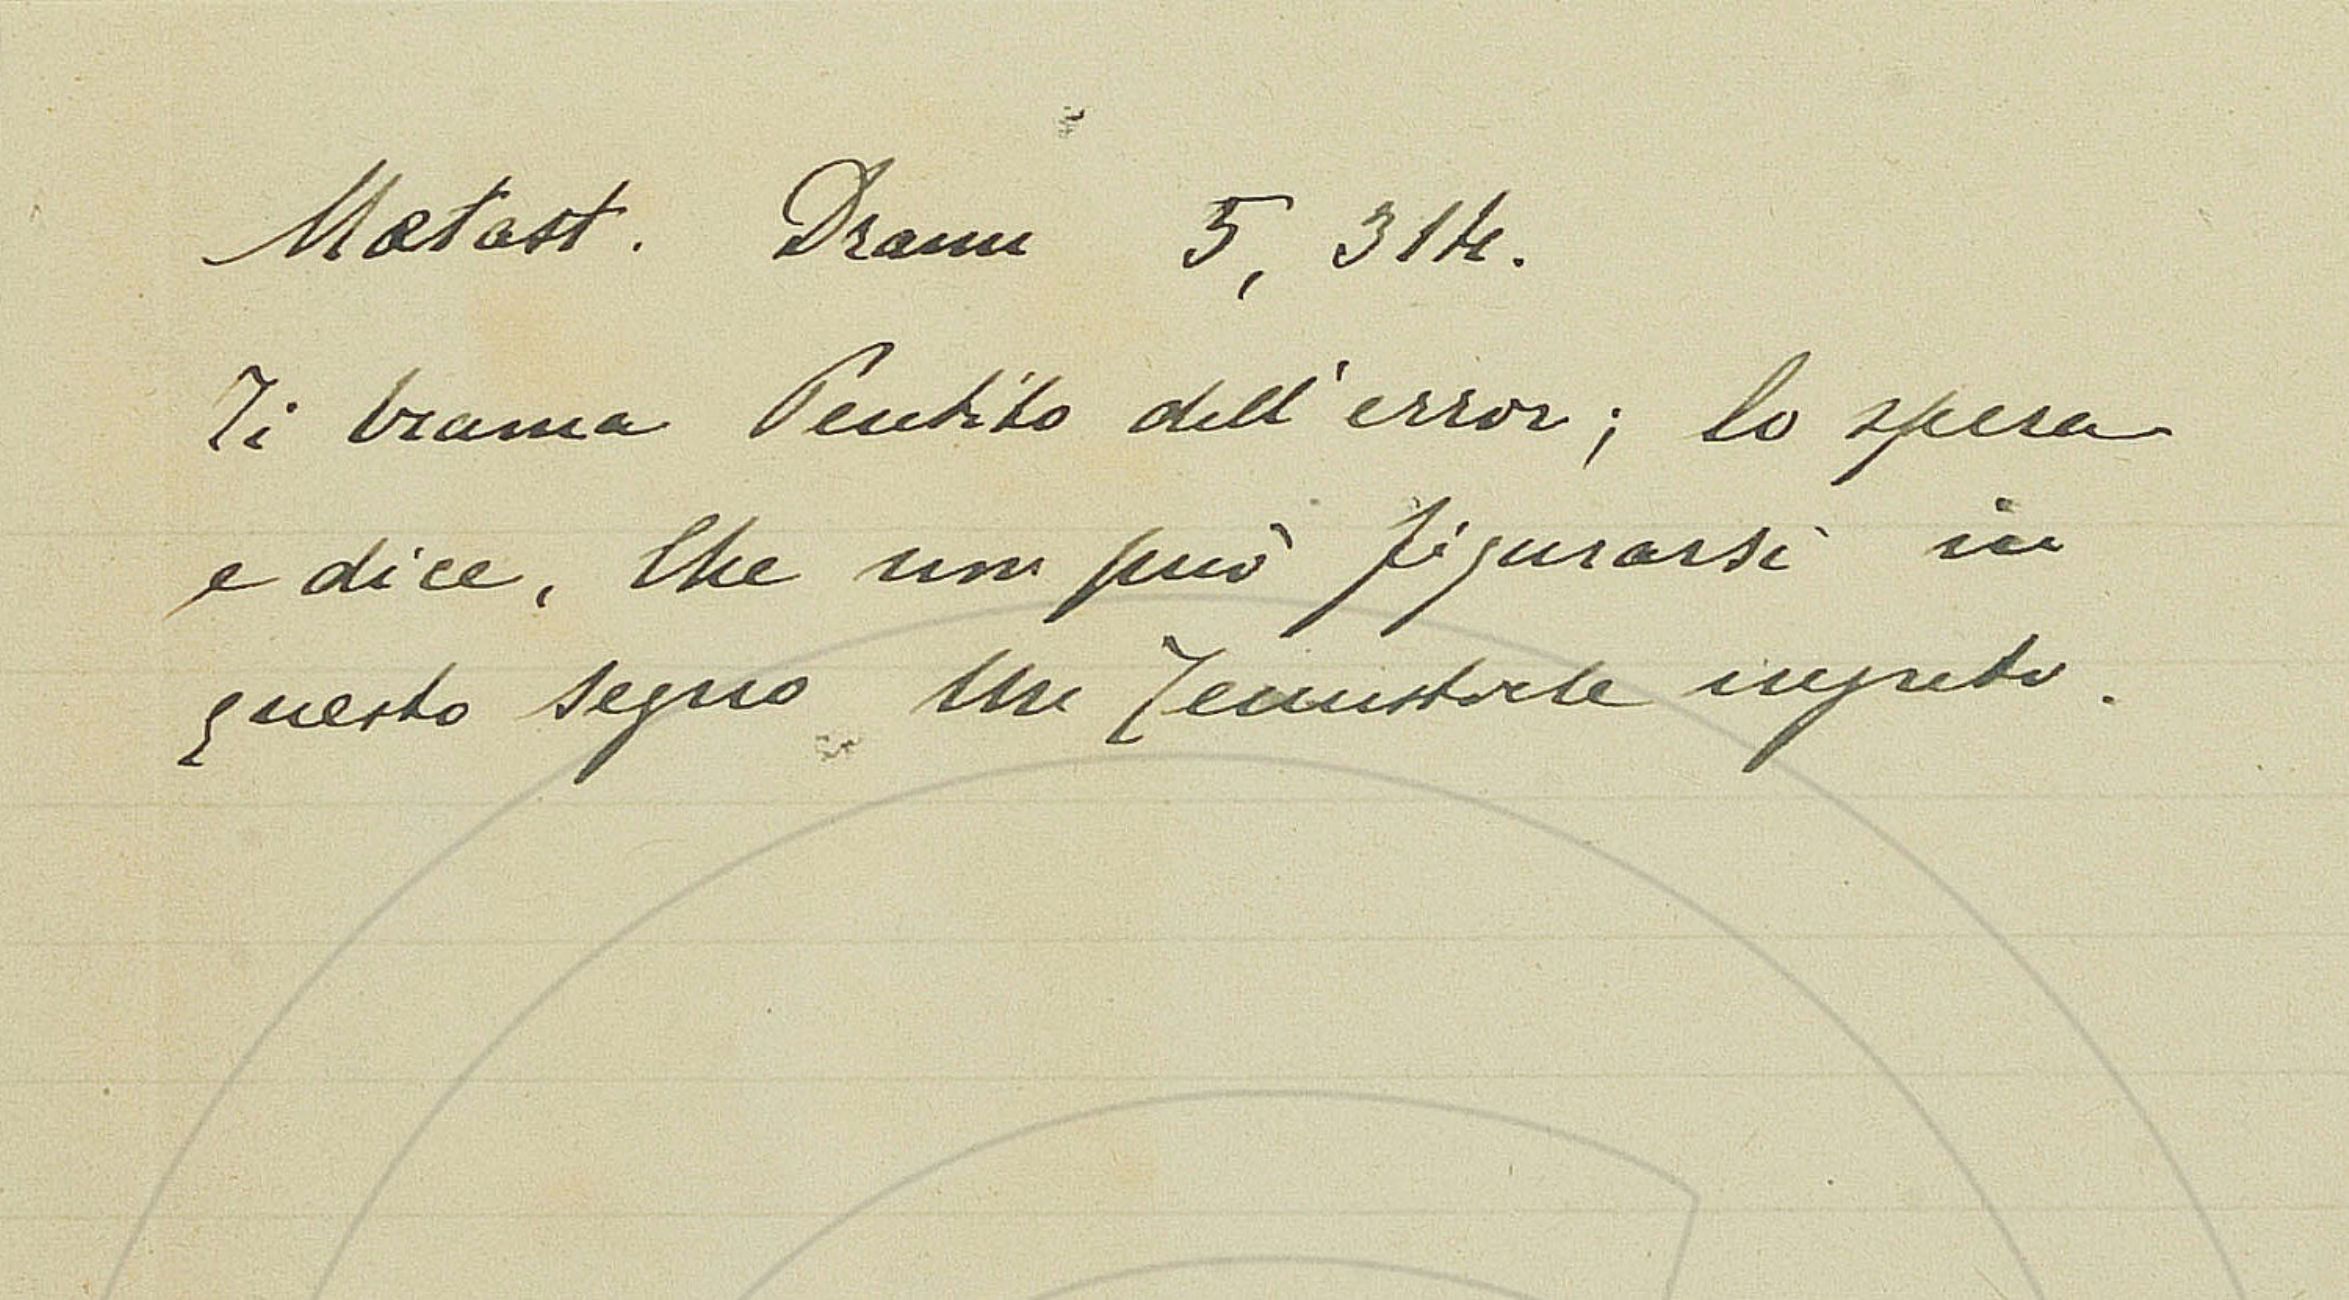 Metast. Dramm 5, 314.
Ti brama Pentito dell'error; lo spera
e dice, Che non può figurarsi in
questo segno Un Temistocle ingrato.